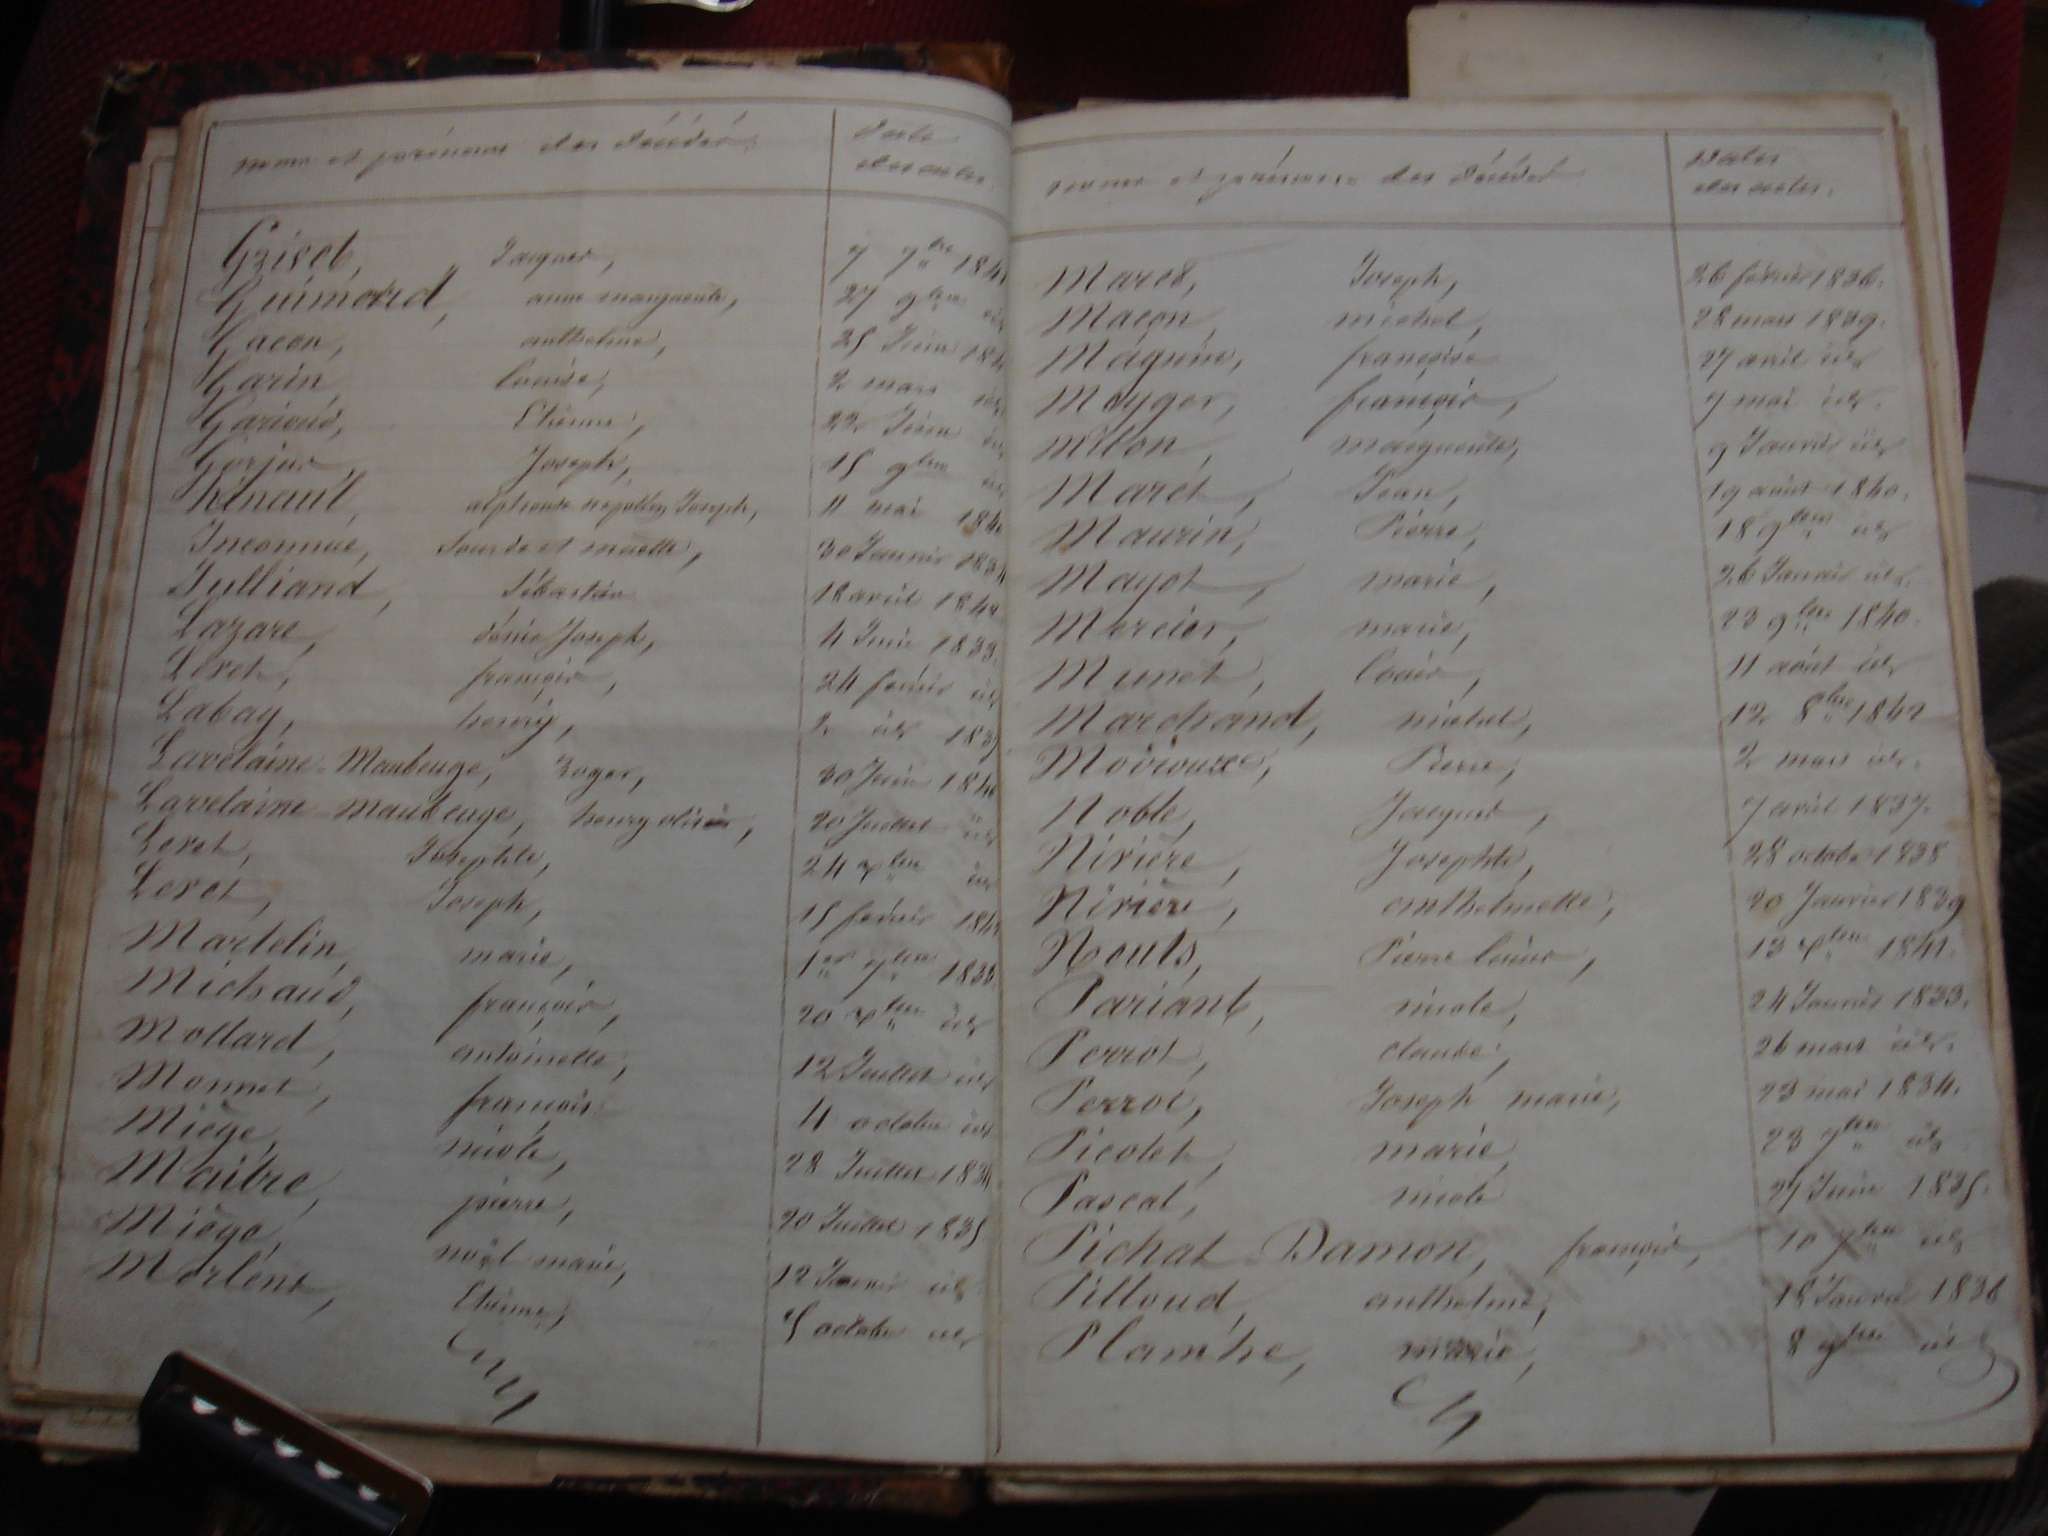 noms et prénoms des décédés.
Date des actes.
Griset, Jacques, 7 7bre 184
Guimord, anne marguerite, 27 9bre id
Gacon, anthelme, 25 Juin 184
Garin, louise, 2 mars id
Garioud, Etienne, 22 Juin id
Gorjus, Joseph, 15 9bre id
hénault, alphonse Joseph, 11 mai 184
Inconnue, Sourde et muette, 30 Janvier 1834
Julliand, Sébastien 18 avril 1842
Lazare, dénis Joseph, 4 Juin 1833.
Leret, françois, 24 février id
Labay, henry, 2 id 183
Lavelaine-Maubeuge, Roger, 30 Juin 1840
Lavelaine maubeuge, henry olivier, 20 Juillet id
Leret, Josephte, 24 xbre id
Leret, Joseph, 15 février 184
Martelin, marie, 1er 7bre 1833.
Michaud, françois, 20 xbre id
Mollard, antoinette, 12 Juillet id
Monnet, françois 4 octobre id
Miège, nicole, 28 Juillet 1834
Maitre, pierre, 20 Juillet 1835
Miège, noël marie, 12 Janvier id
Morlént, Etienne, 5 octobre id
noms et prénoms des décédés
Dates des actes.
Maret, Joseph, 26 février 1836.
Macon, michel, 28 mars 1839.
Magnin, françoise 27 avril id
Moyger, françois, 7 mai id.
Milon, marguerite, 9 Janvier id
Maret, Jean, 19 août 1840.
Maurin, Pierre, 18 9bre id
Mayot, marie, 26 Janvier id.
Mercier, marie, 23 9bre 1840.
Munet, louis, 11 août id
Marchand, michel, 12 8bre 1842
Moiroux, Pierre, 2 mars id.
Noble, Jacques, 7 avril 1837.
Nivière, Josephte, 28 octobre 1838
Nivière, anthelmette, 20 Janvier 1839
Nouls, Pierre louis, 13 xbre 1841.
Pariant, nicole, 24 Janvier 1833.
Perrot, claude, 26 mars id.
Perrot, Joseph marie, 23 mai 1834.
Picolet, marie, 23 7bre id
Pascal, nicole 27 Juin 1835.
Pichat Damon, françois, 10 7bre id
Pilloud, anthelme, 18 Janvier 1836
Planche, marie, 8 9bre id